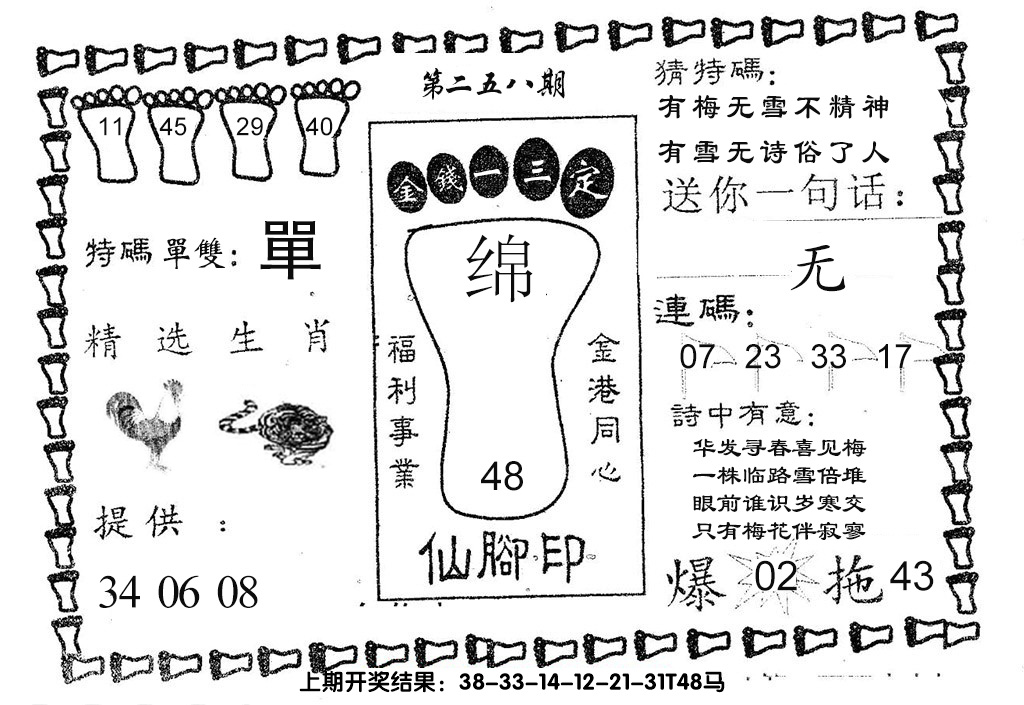 第二五八期
11 45 29 40
特碼單雙：單
精选生肖
提供：
34 06 08
金錢一三定
绵
福利事業
金港同心
48
仙腳印
猜特碼：
有梅无雪不精神
有雪无诗俗了人
送你一句话：
无
連碼：
07 23 33 17
詩中有意：
华发寻春喜见梅
一株临路雪倍堆
眼前谁识岁寒交
只有梅花伴寂寥
爆 02 拖 43
上期开奖结果：38-33-14-12-21-31T48马